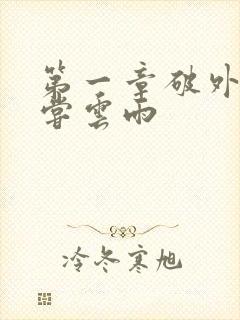 第一章破外
嘗雲雨
冷冬寒旭